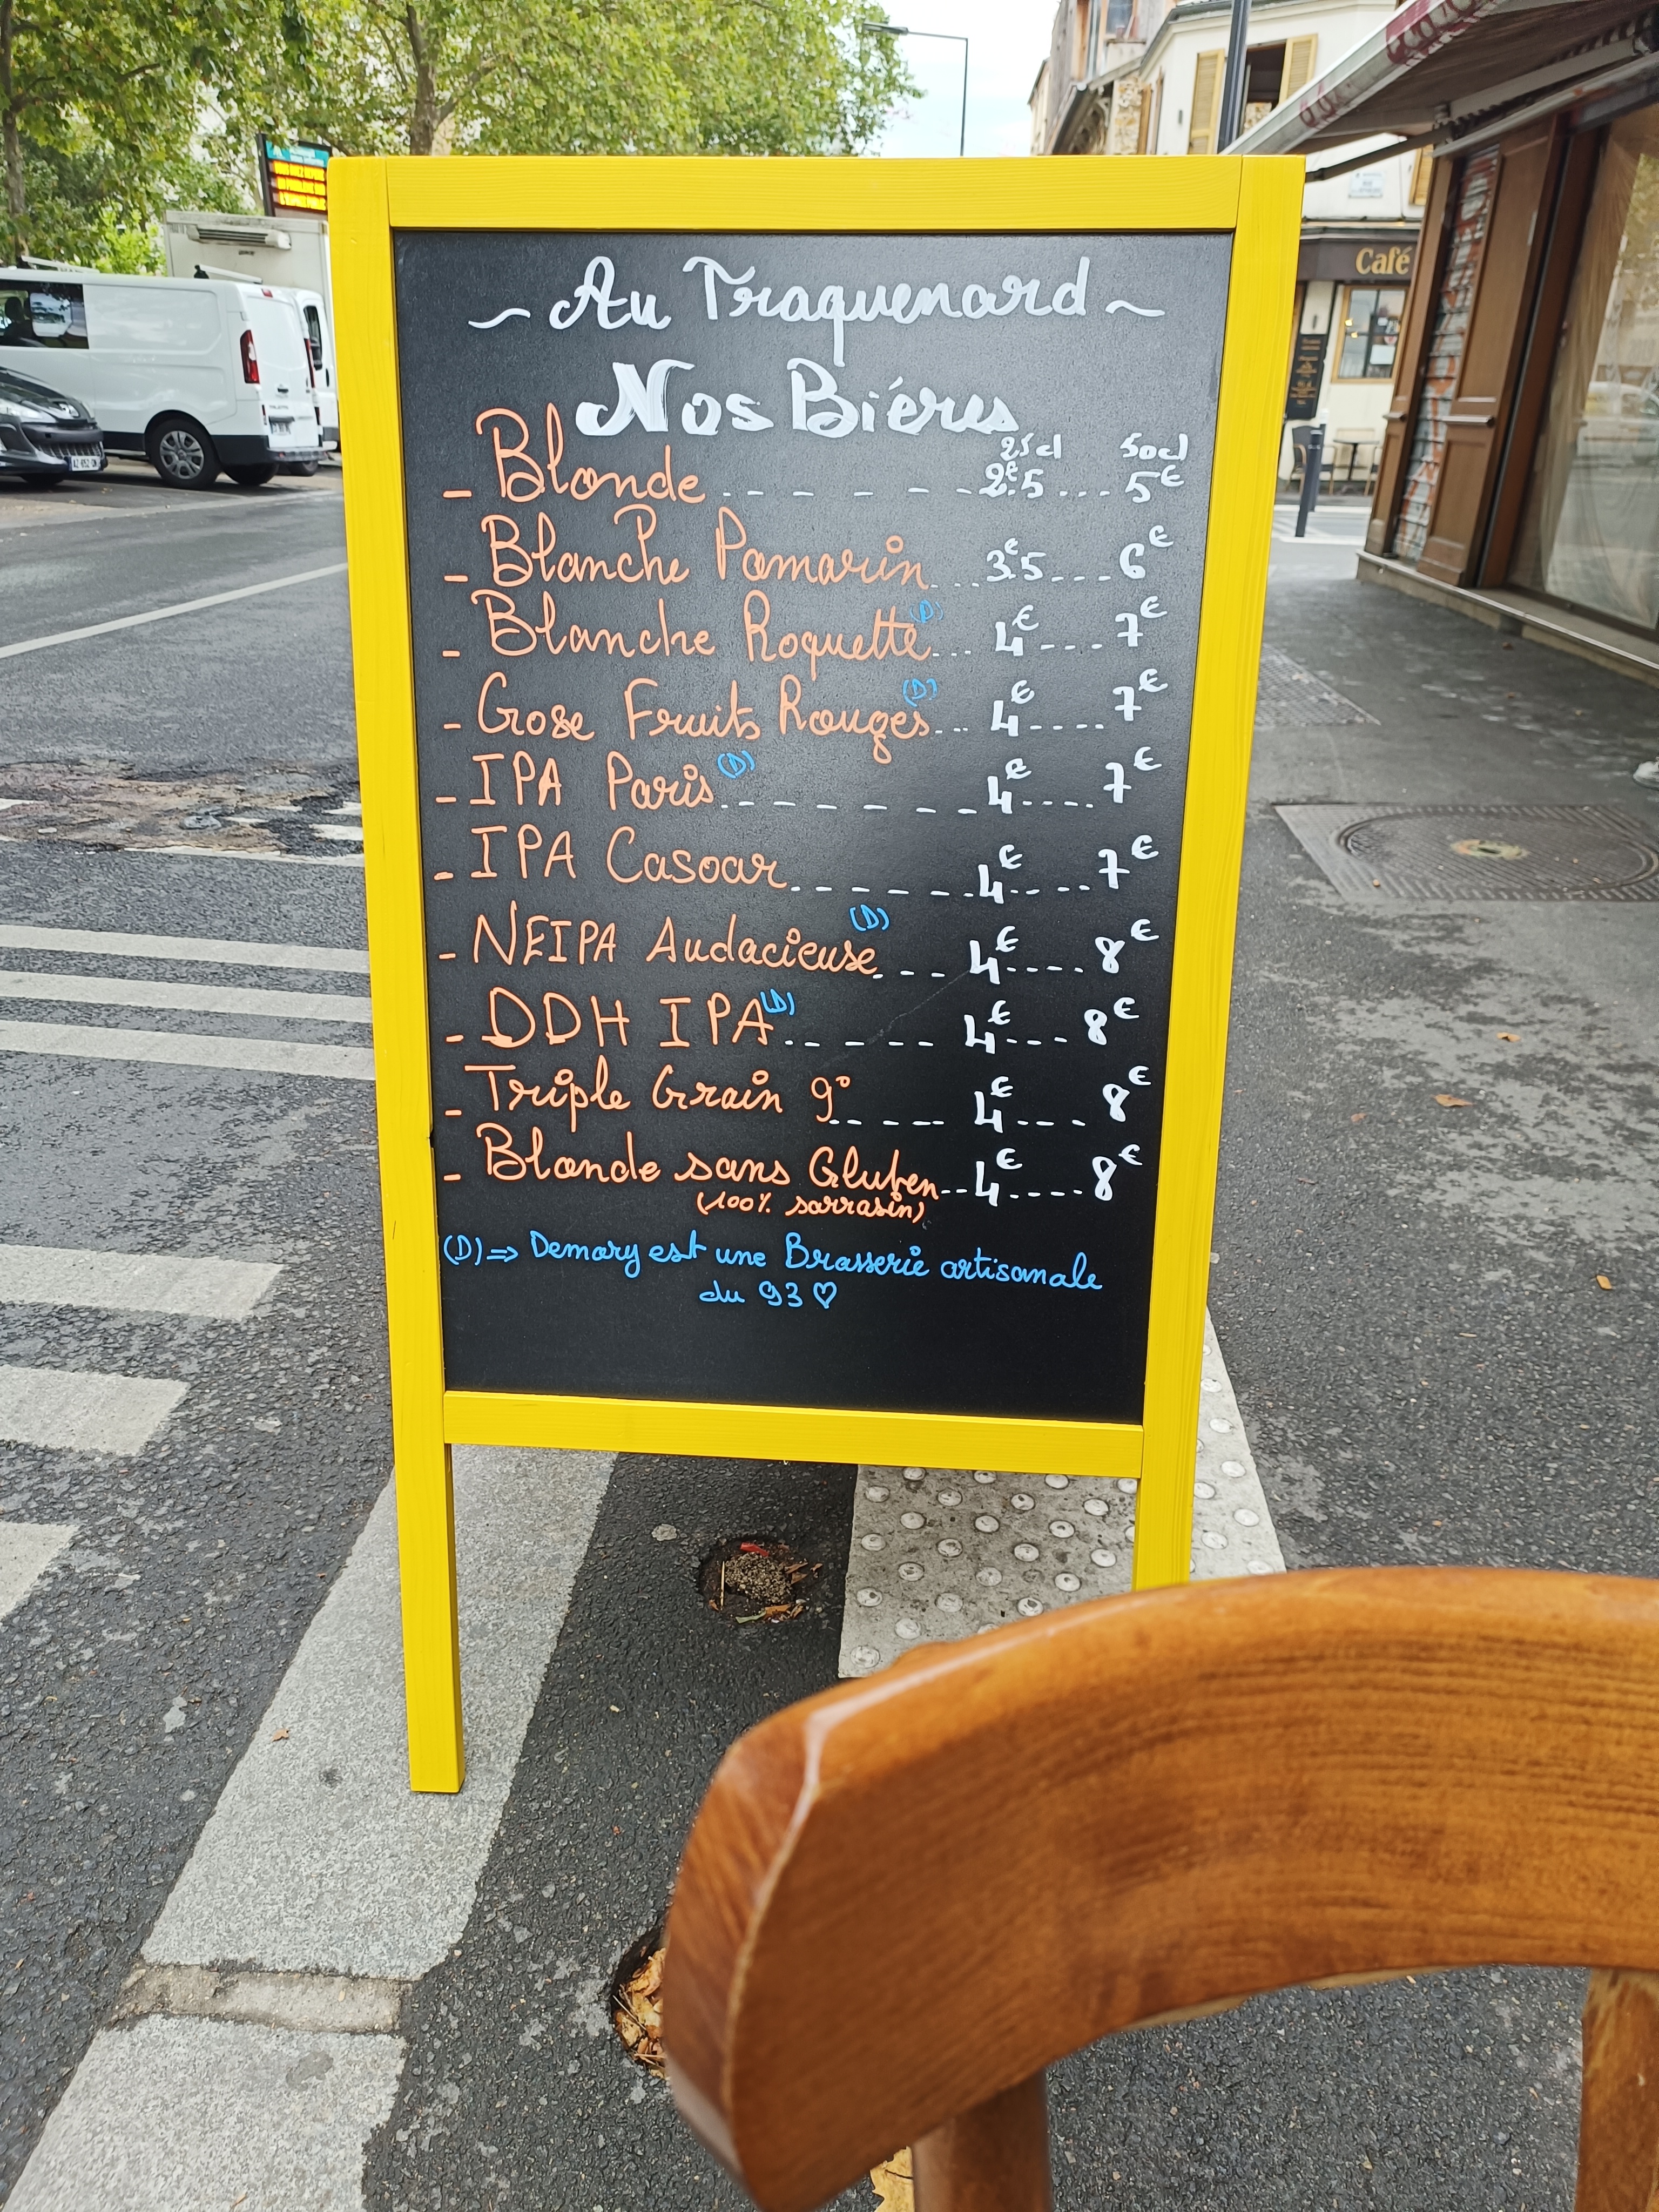 ~ Au Traquenard ~
Nos Biéres
25cl 50cl
- Blonde ---- 2€.5 ... 5€
- Blanche Pomarin ... 3€.5 --- 6€
- Blanche Roquette (D) ... 4€ ---- 7€
- Gose Fruits Rouges (D) ... 4€ ---- 7€
- IPA Paris (D) ------- 4€ ---- 7€
- IPA Casoar ------ 4€ ---- 7€
- NEIPA Audacieuse (D) --- 4€ ---- 8€
- DDH IPA (D) ----- 4€ --- 8€
- Triple Grain 9° ---- 4€ --- 8€
- Blonde sans Gluten -- 4€ ---- 8€
(100% sarrasin)
(D) => Demory est une Brasserie artisanale
du 93 ♡
Café